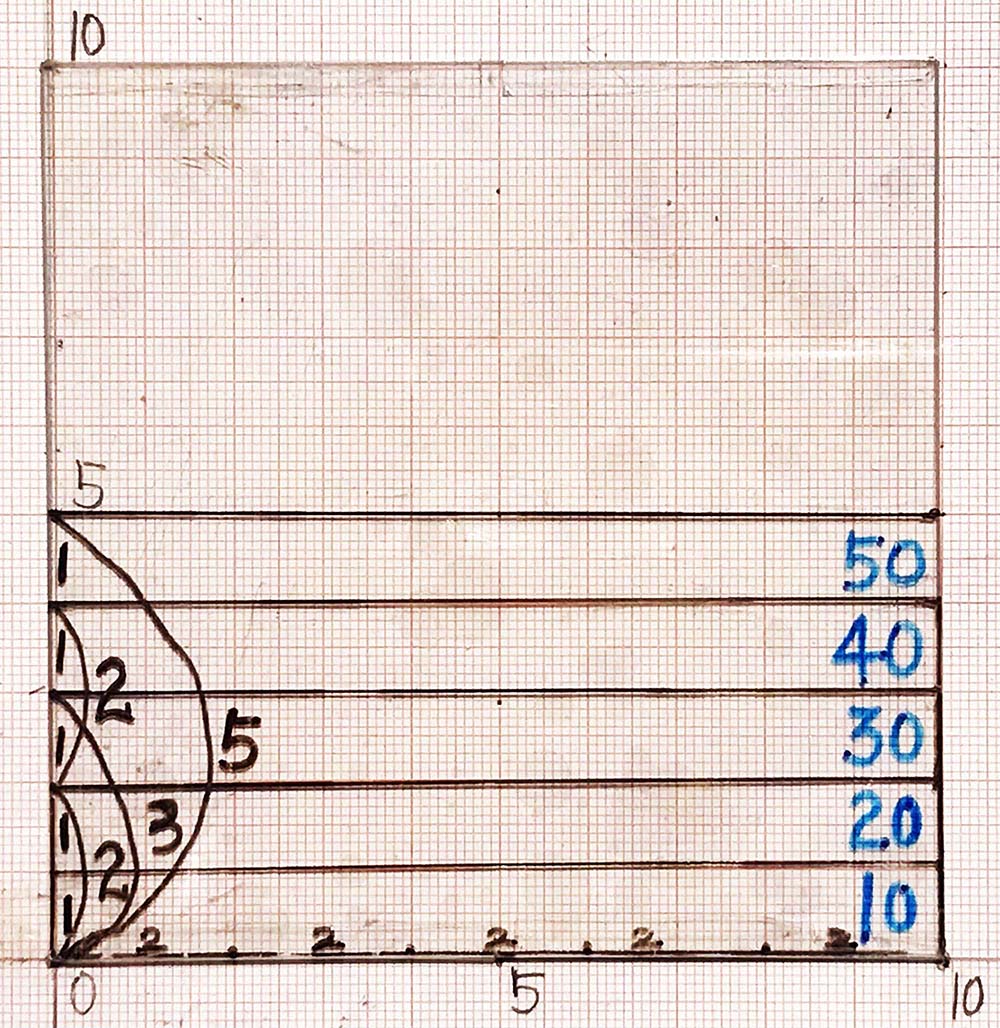 10
5
1 50
1 2 40
1 5 30
1 3 20
1 2 10
2 2 2 2 2
0 5 10